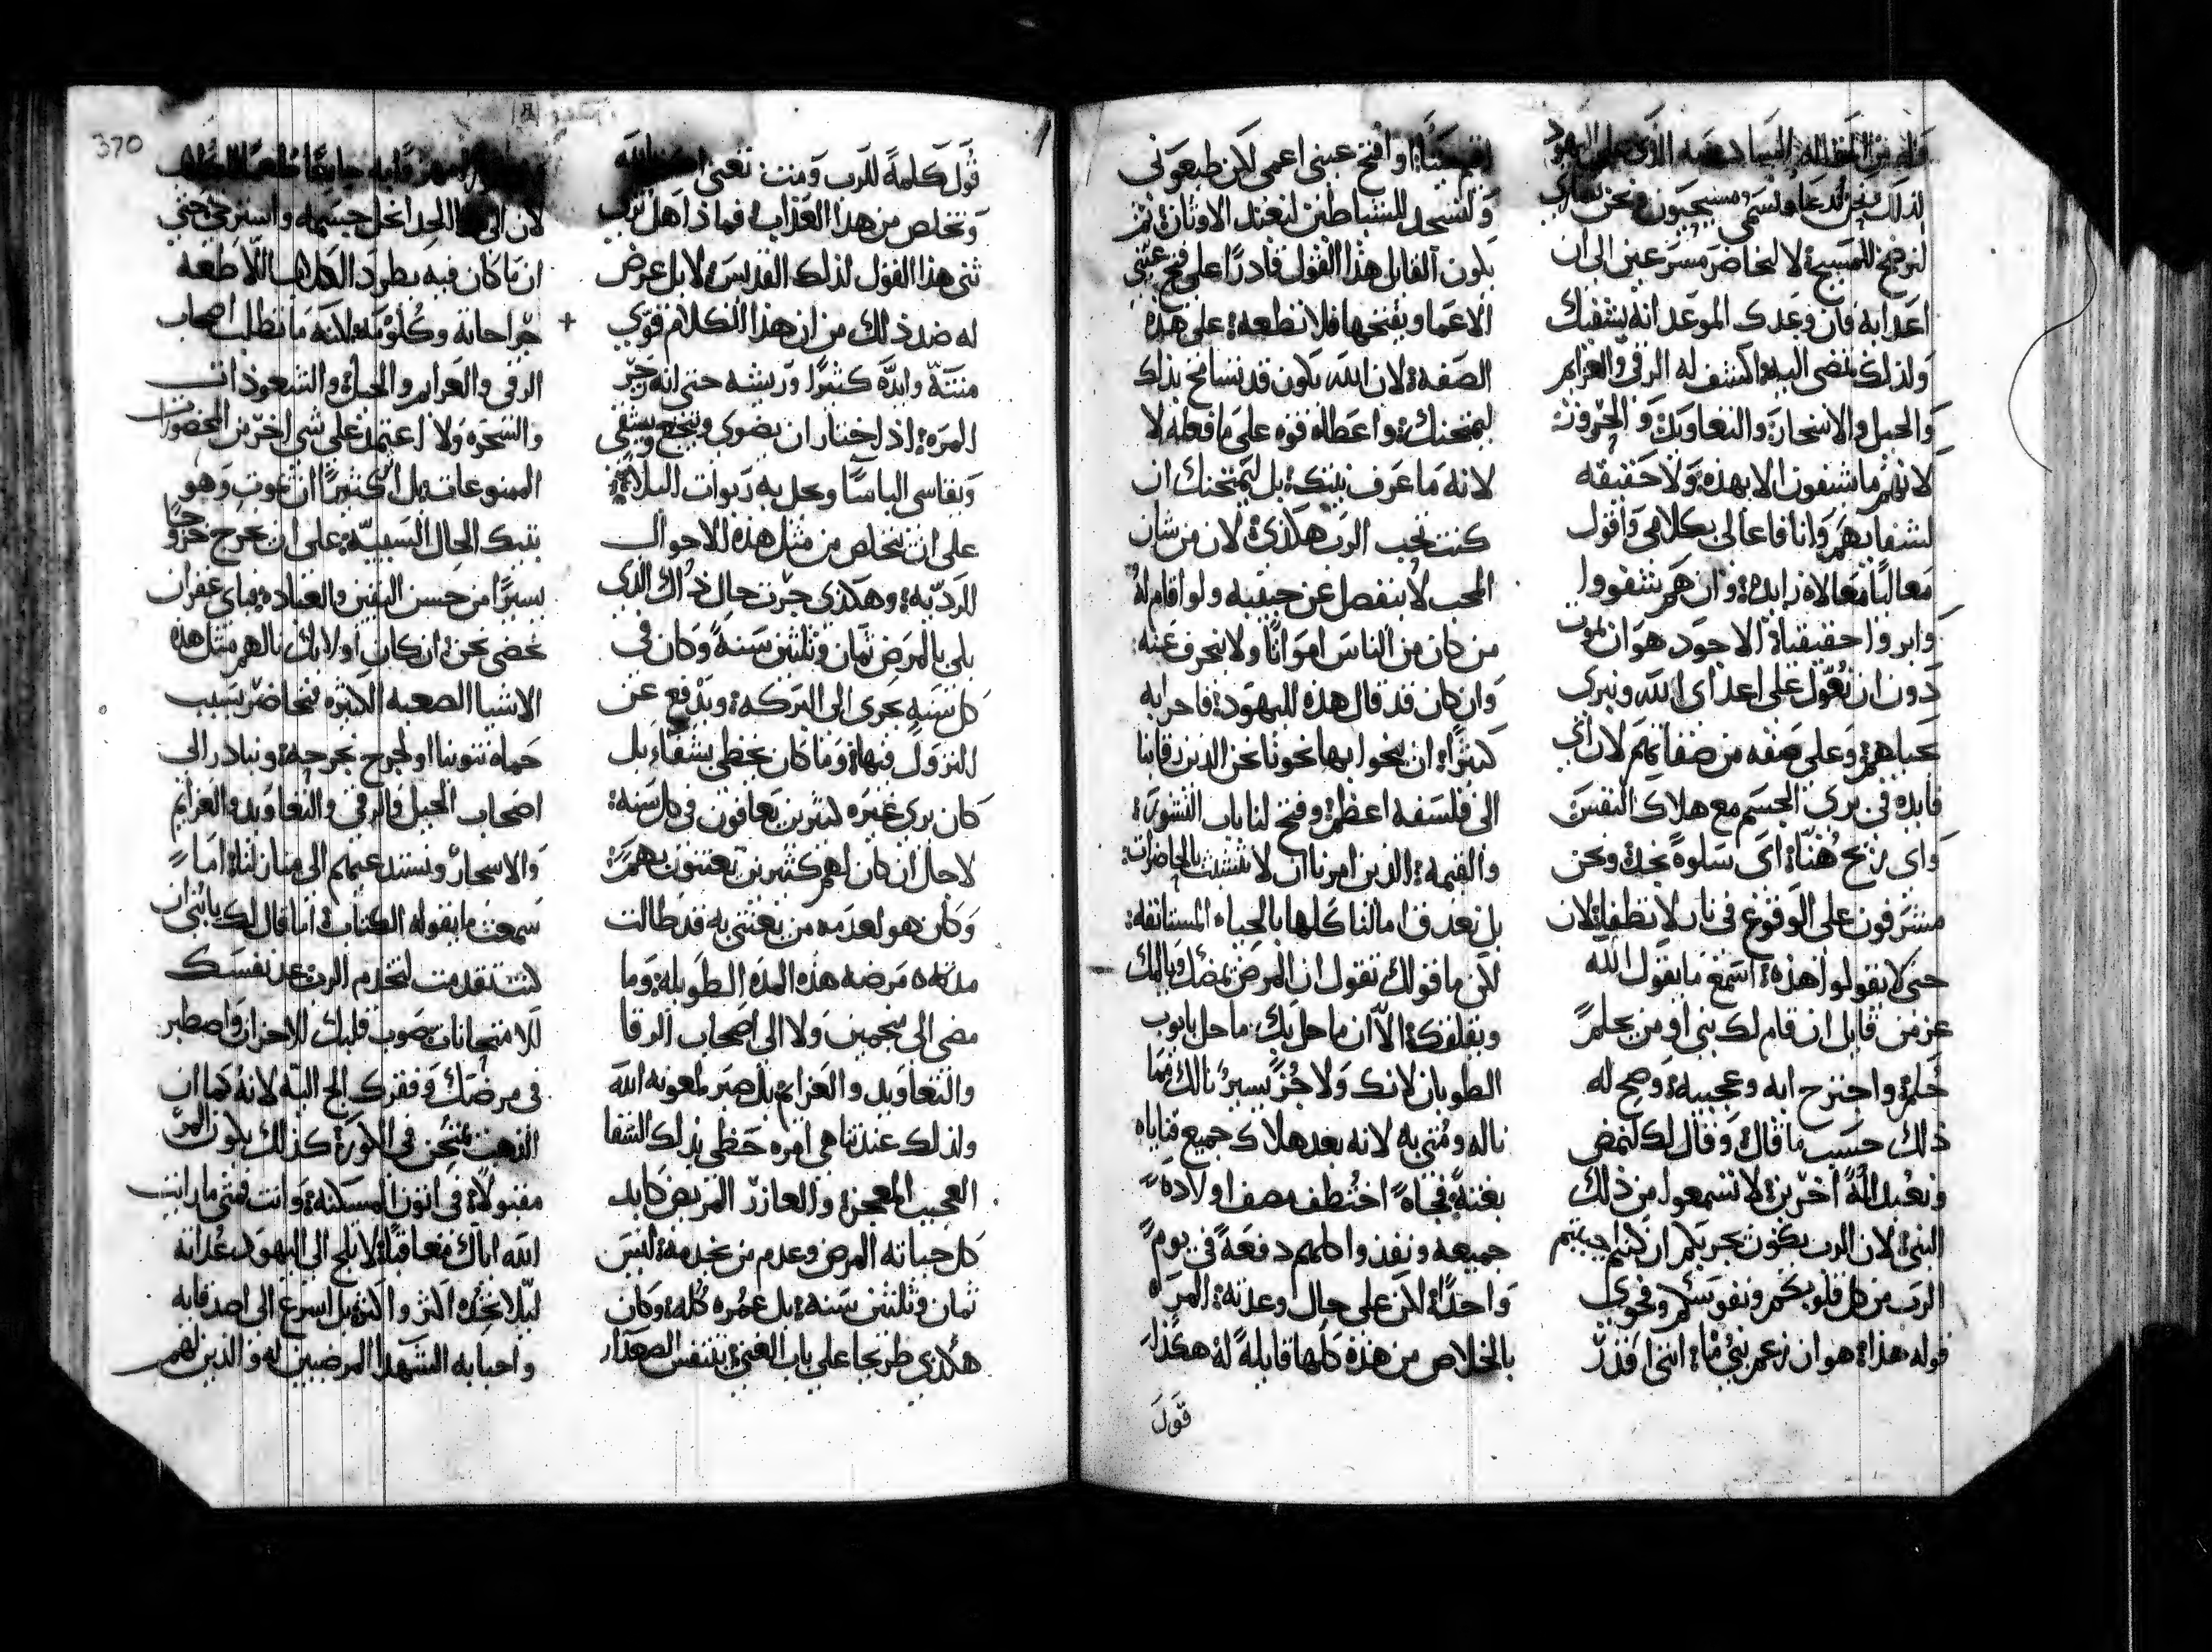 لذلك نحن ندعا ونسمى مسيحيون ونحن نصارى
لنرضي المسيح لا لنحاضر مسرعين الى ان
اعدايه وان وعدك الموعد انه يشفيك
ولذلك تمضي اليه واكشف له الرقى والعزايم
والحيل والاسحار والتعاويذ والحروز
لانهم ما يشفون الا بهذه ولا حقيقه
لشفايهم وانا فاعالى بكلامي واقول
مغاليا مغالاه زايده وان هم شفووا
وابروا حقيقياة الاجود هو ان نموت
دون ان نعول على اعداي الله ونبرى
بحياهم وعلى صفه من صفاتهم لان اي
فايده في برى الجسم مع هلاك النفس
واي ربح هناة اي سلوة نجد ونحن
مشرفون على الوقوع في نار لا تطفا لان
حتى لا يقولوا هذه اسمع ما يقول الله
عز من قايل ان قام لك نبي او من يحلم
حلم واجترح ايه وعجيبه وصح له
ذلك حسب ما قال وقال لك لنمض
ونعبد الهة اخرين لا تسمعوا من ذلك
النبي لان الرب يكون يجربكم ان كنتم حبيتم
الرب من كل قلوبكم ونفوسكم وفحوى
قوله هذا هو ان زعم نبي ما انني اقدر
اقيم ميتا او افتح عيني اعمى لكن طيعوني
ولنسجد للشياطين لنعبد الاوثان ثم
يكون القايل هذا القول قادرا على فتح عيني
الاعما ويفتحها فلا تطعه على هذه
الصفه لان الله يكون قد تسامح بذلك
ليمتحنك واعطاه قوه على ما فعله لا
لانه ما عرف نيتك بل ليمتحنك ان
كنت تحب الرب هكذي لان من شان
المحب لا ينفصل عن حبيبه ولو اقام له
من كان من الناس امواتا ولا ينحرف عنه
وان كان قد قال هذه لليهود فاحرابه
كثيرا ان ينحوا بها نحونا نحن الذين رقانا
الى فلسفه اعظم وفتح لنا باب النشور
والقيمه الذين امرنا ان لا نتشبث بالحاضرات
بل نعدق امالنا كلها بالحياه المستانفه
لكن ما قولك تقول ان المرض يمضك ويالمك
ويقلقك الا ان ما حل بك ما حل بايوب
الطوبان لانك ولا جز يسير نالك مما
ناله ومني به لانه بعد هلاك جميع قناياه
بغتة فجاه اختطف مصف اولاده
جميعه ونفذوا كلهم دفعة في يوم
واحد لكن على حال وعدته المراه
بالخلاص من هذه كلها قايلة له هكذا
قول
قول كلمة للرب ومت تعني
وتخلص من هذا العذاب فماذا هل
ثنى هذا القول لذلك القديس لا بل عرض
له ضد ذلك من ان هذا الكلام قوي
منته وايده كثيرا وريشه حتى انه زجر
المره اذ اختار ان يضوى ويتجع ويشقى
ويقاسى الباسا وتحل به ربوات البلا
على ان يتخلص من مثل هذه الاحوال
الرديه وهكذي جرت حال ذاك الذي
بلي بالمرض ثمان وثلثين سنة وكان في
كل سنه يجرى الى البركه ويدفع عن
النزول فيها وما كان يحظى بشفاء بل
كان يرى غيره كثيرين يعافون في كل سنه
لا حال ان كان لهم كثيرين يعتنون بهم
وكان هو لعدمه من يعتني به قد طالت
مدته مرضه هذه المده الطويله وما
مضى الى منجمين ولا الى اصحاب الرقا
والتعاويذ والعزايم بل صبر لمعونه الله
ولذلك عند تناهي امره حظي بذلك الشفا
العجيب المعجز والعازر المريض كابد
كل حياته المرض وعدم من يخدمه ليس
ثمان وثلثين سنه بل عمره كله وكان
هكذي طريحا على باب الغني يتنفس الصعدا
انه ما كان فيه يطرد الكلاب اللاطعه
جراحاته وكلومه لكنه ما تطلب اصحاب
الرقى والعزايم والحيل والشعوذات
والسحره ولا اعتمد على شي اخر من المحضورات
الممنوعات بل اثر كثيرا ان يموت وهو
بتيك الحال السيه على ان يخرج خروجا
يسيرا من حسن اليقين والعباده فباي غفران
نحضى نحن ان كان اولايك نالهم مثل هذه
الاشيا الصعبه الكثيره فنحاضر بسبب
حماه تنوبنا او لجرح نجرحه ونبادر الى
اصحاب الحيل والرقى والتعاويذ والعزايم
والاسحار ونستدعيهم الى منازلنا اما
سمعت ما يقوله الكتاب انا قال لك يا بني ان
كنت تقدمت لتخدم الرب عد نفسك
للامتحانات صوب قلبك للاحزان واصطبر
في مرضك وفقرك الج اليه لانه كما ان
الذهب يمتحن في الكوره كذلك يكون المر
مقبولا في اتون المسكنه وانت فمتى ما رايت
الله اباك معاقبا لا تلج الى اليهود عداته
ليلا تحده اكثر واكثر بل اسرع الى اصدقايه
واحبايه الشهدا المرضيين له والذين لهم
370